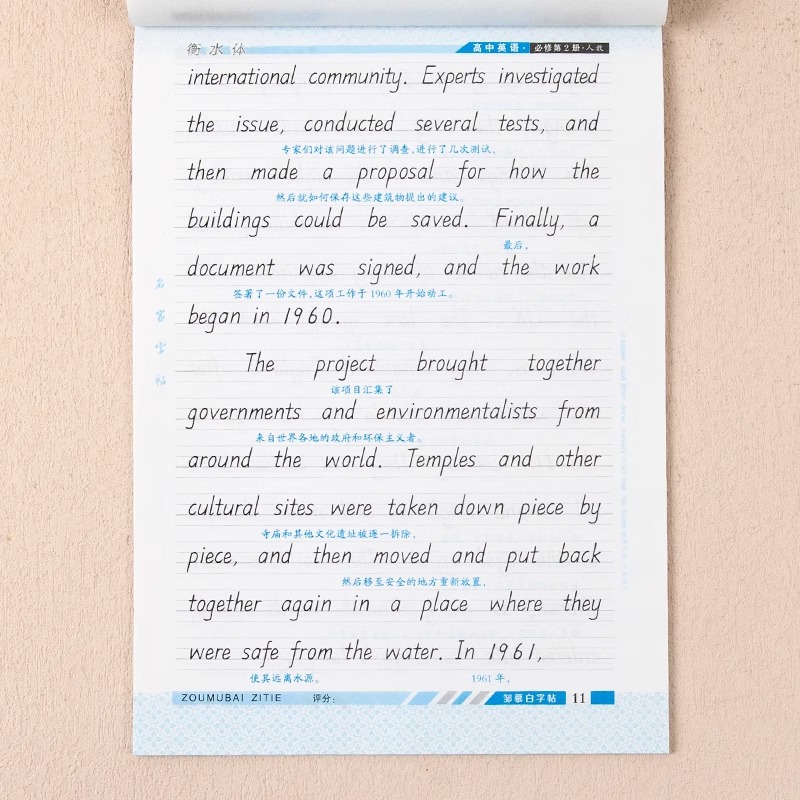 衡水体
高中英语·必修第2册·人教
international community. Experts investigated
the issue, conducted several tests, and
专家们对该问题进行了调查,进行了几次测试,
then made a proposal for how the
然后就如何保存这些建筑物提出的建议。
buildings could be saved. Finally, a
最后,
document was signed, and the work
签署了一份文件,这项工作于1960年开始动工。
began in 1960.
The project brought together
该项目汇集了
governments and environmentalists from
来自世界各地的政府和环保主义者。
around the world. Temples and other
cultural sites were taken down piece by
寺庙和其他文化遗址被逐一拆除,
piece, and then moved and put back
然后移至安全的地方重新放置,
together again in a place where they
were safe from the water. In 1961,
使其远离水源。 1961年,
名家字帖
ZOUMUBAI ZITIE 评分:
邹慕白字帖 11